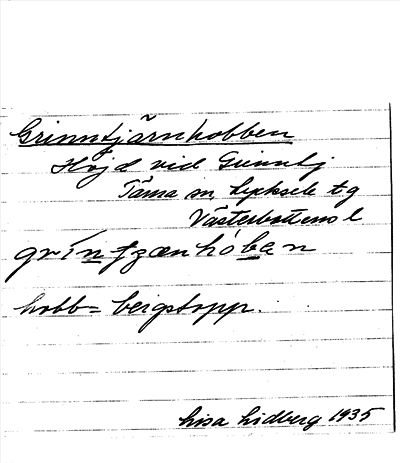 Grinntjärnhobben
Höjd vid Grinntj
Tärna sn, Lycksele tg
Västerbottens l
grintjzænhóban
hobb = bergstopp.
Lisa Lidberg 1935